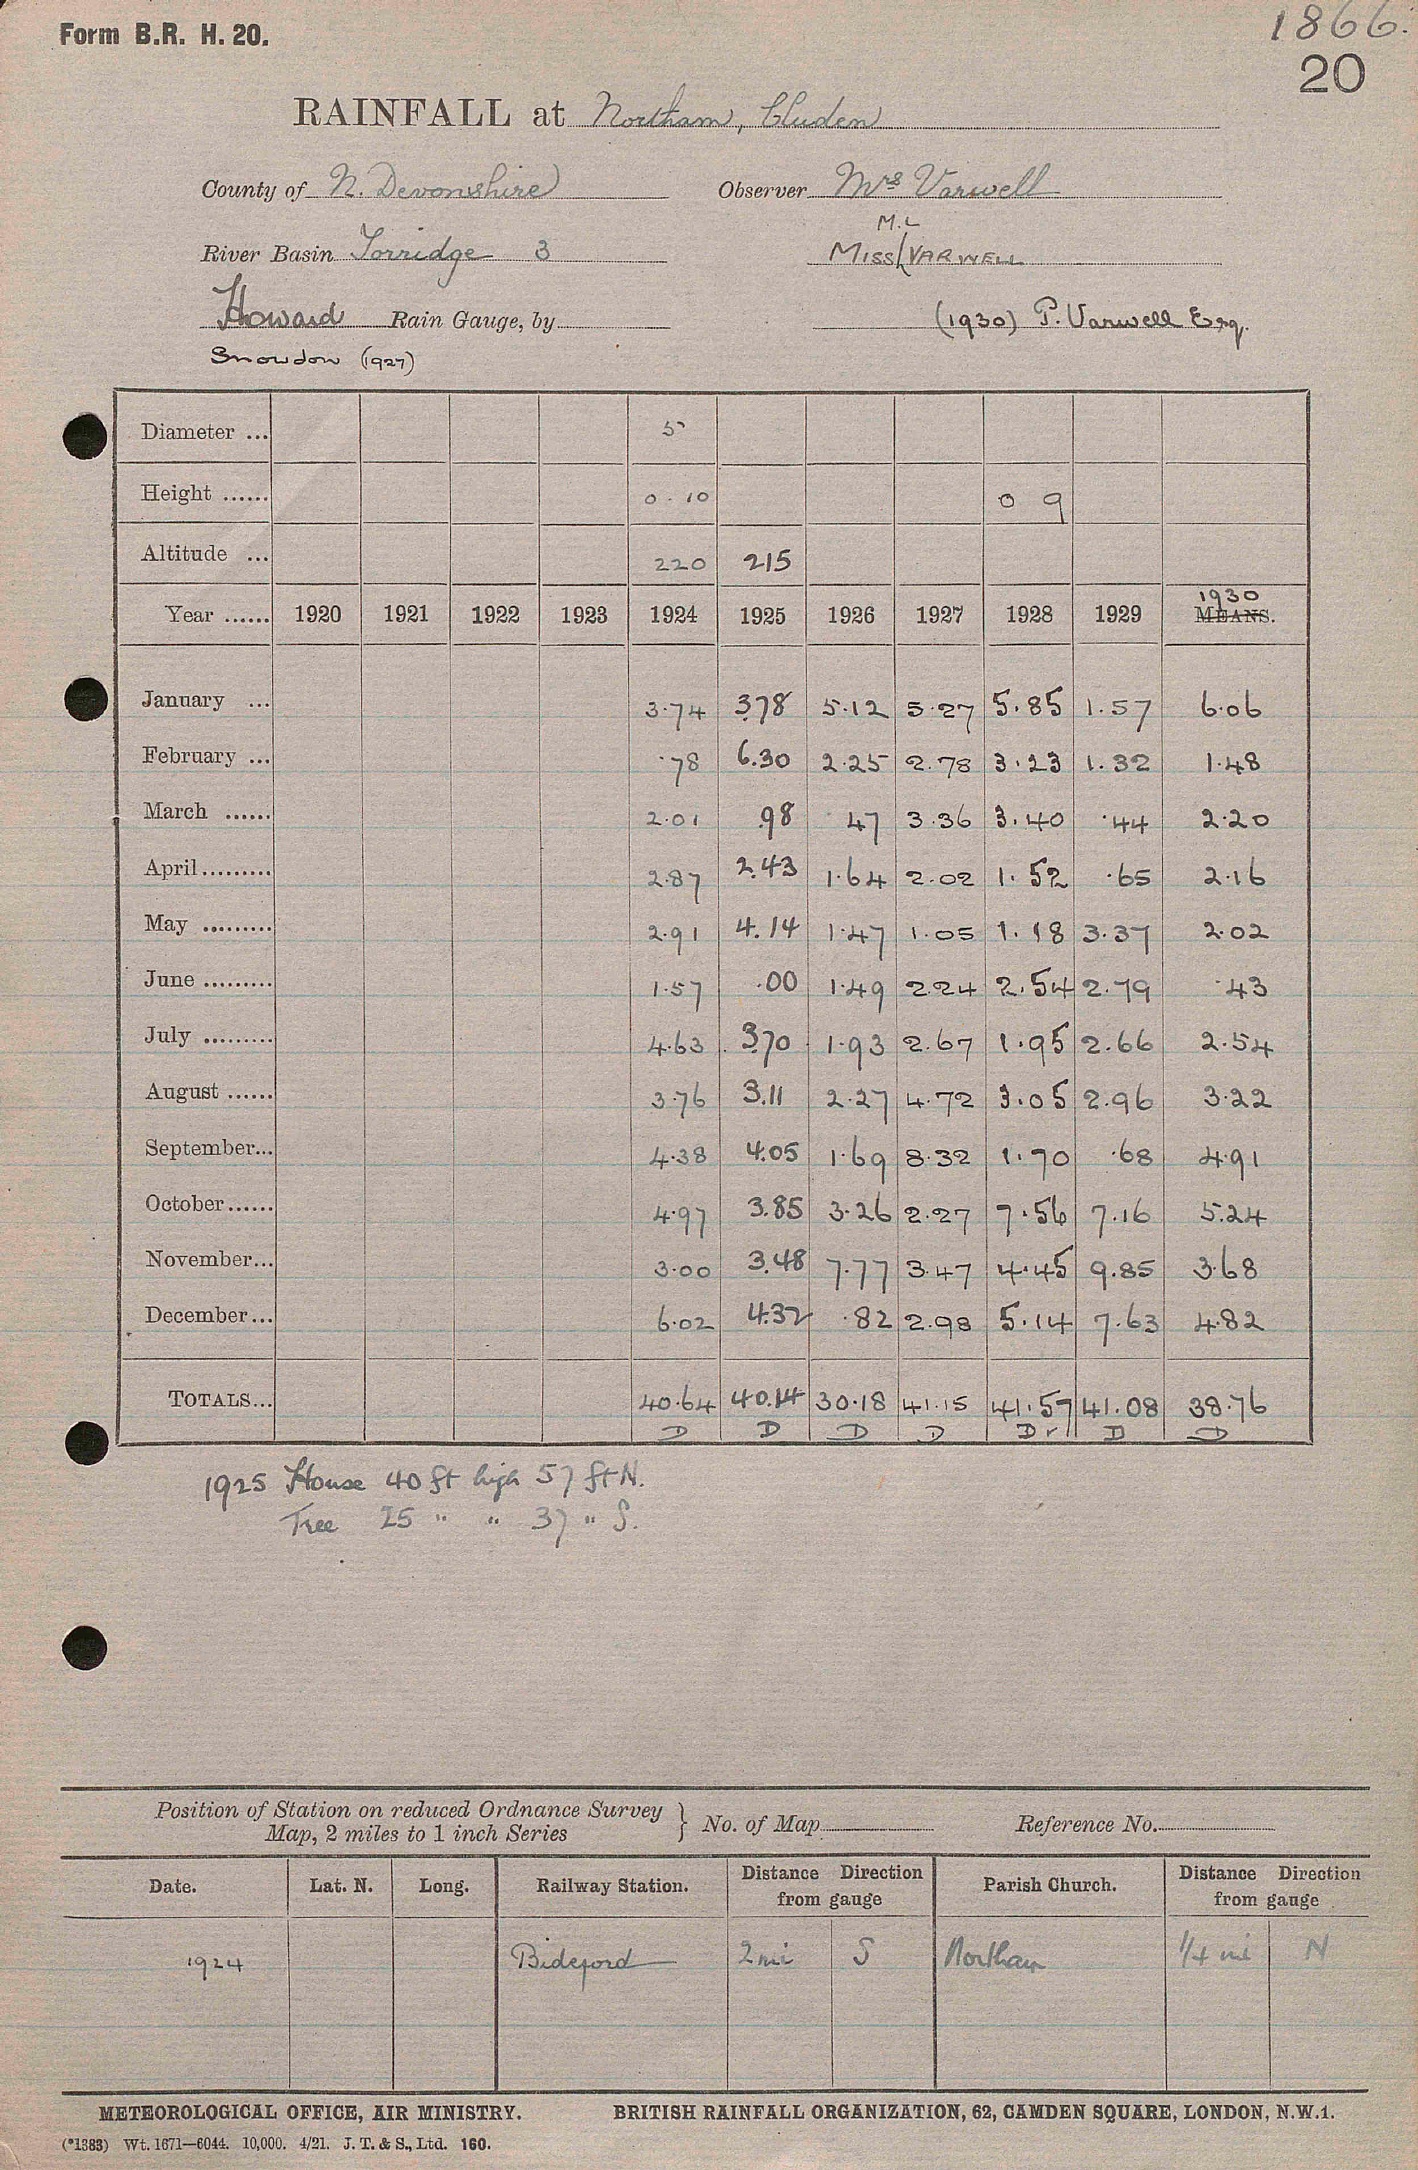 Form B.R. H. 20.
1866.
20
RAINFALL at Northam, Cluden
County of N. Devonshire Observer Mrs Varwell
M.L
River Basin Torridge 3 MISS VARWELL
Howard Rain Gauge, by (1930) P. Varwell Esq.
Snowdon (1927)
Diameter ... 5
Height ...... 0 - 10 0 9
Altitude ... 220 215
1930
Year ...... 1920 1921 1922 1923 1924 1925 1926 1927 1928 1929 MEANS.
January ... 3.74 3.78 5.12 5.27 5.85 1.57 6.06
February ... .78 6.30 2.25 2.78 3.23 1.32 1.48
March ...... 2.01 .98 .47 3.36 3.40 .44 2.20
April ......... 2.87 2.43 1.64 2.02 1.52 .65 2.16
May ......... 2.91 4.14 1.47 1.05 1.18 3.37 2.02
June ......... 1.57 .00 1.49 2.24 2.54 2.79 .43
July ......... 4.63 3.70 1.93 2.67 1.95 2.66 2.54
August ...... 3.76 3.11 2.27 4.72 3.05 2.96 3.22
September... 4.38 4.05 1.69 8.32 1.70 .68 4.91
October ...... 4.97 3.85 3.26 2.27 7.56 7.16 5.24
November... 3.00 3.48 7.77 3.47 4.45 9.85 3.68
December... 6.02 4.32 .82 2.98 5.14 7.63 4.82
TOTALS... 40.64 40.14 30.18 41.15 41.57 41.08 38.76
D D D D D D D
1925 House 40 ft high 57 ft N.
Tree 25 " " 37 " S.
Position of Station on reduced Ordnance Survey
Map, 2 miles to 1 inch Series } No. of Map Reference No.
Date. Lat. N. Long. Railway Station. Distance Direction from gauge Parish Church. Distance Direction from gauge
1924 Bideford 2 mi S Northam 1/4 mi N
METEOROLOGICAL OFFICE, AIR MINISTRY. BRITISH RAINFALL ORGANIZATION, 62, CAMDEN SQUARE, LONDON, N.W.1.
(*1383) Wt. 1671—6044. 10,000. 4/21. J. T. & S., Ltd. 160.